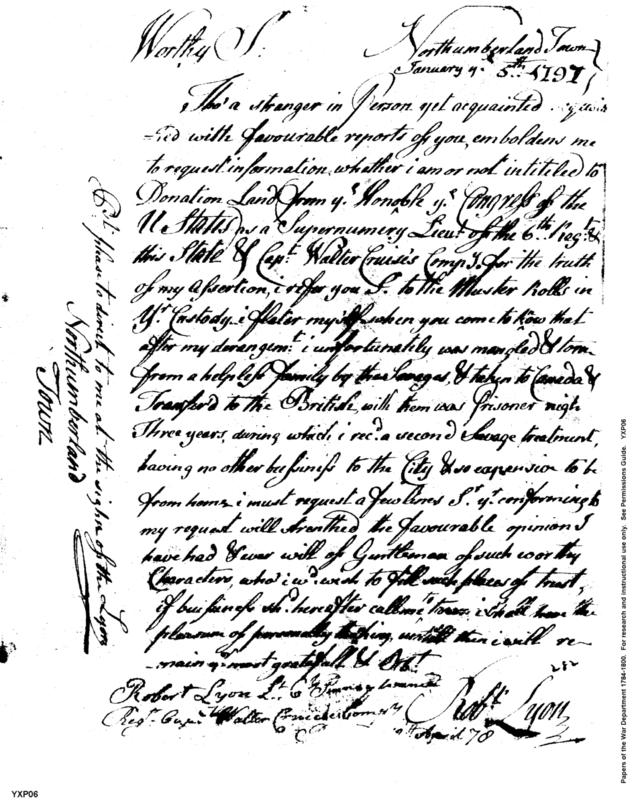 Worthy Sr.
Northumberland Town
January ye 5th 1797
Tho' a stranger in Person yet acquainted
with favourable reports of you, emboldens me
to request information, whether i am or not intitled to
Donation Land from ye Honoble ye Congress of the
U States as a Supernumery Lieut of the 6th Regt
this State & Capt Walter Cruise's Compy. for the truth
of my assertion, i refer you Sr. to the Muster Rolls in
Yr Custody. i flater myself when you come to know that
after my derangemt i unfortunately was mangled & torn
from a helpless family by the Savages, & taken to Canada &
Transferd to the British, with them was Prisoner nigh
Three years, during which i recd a second Savage treatment,
having no other bussiness to the City & so expensive to be
from home, i must request a few lines Sr. yr conforming to
my request will strenthed the favourable opinion I
have had & ever will of Gentleman of such worthy
Characters, who i wd wish to fill such places of trust,
if bussiness shd hereafter call me i shall have the
pleasure of personally untill then i will re-
main yr most gratefull & Obt
Robt Lyon
Robert Lyon Lt 6th
Regt Capt Walter
April 78
Pst please to direct to me at the sighn of the Lyon
Northumberland
Town
Papers of the War Department 1784-1800. For research and instructional use only. See Permissions Guide. YXP06
YXP06